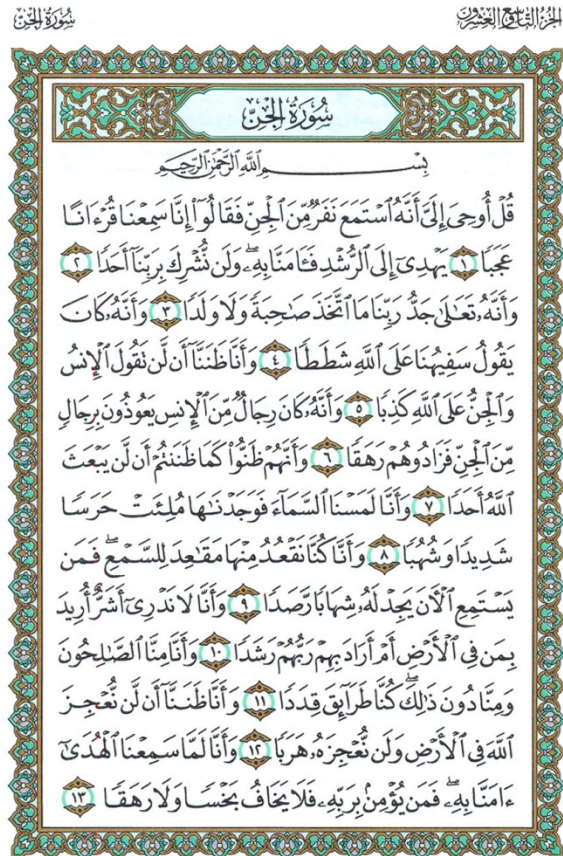 الجزء التاسع والعشرون
سورة الجن
سُورَةُ الجِنِّ
بِسْمِ اللَّهِ الرَّحْمَٰنِ الرَّحِيمِ
قُلْ أُوحِىَ إِلَىَّ أَنَّهُ ٱسْتَمَعَ نَفَرٌ مِّنَ ٱلْجِنِّ فَقَالُوٓا۟ إِنَّا سَمِعْنَا قُرْءَانًا
عَجَبًا ١ يَهْدِىٓ إِلَى ٱلرُّشْدِ فَـَٔامَنَّا بِهِۦ ۖ وَلَن نُّشْرِكَ بِرَبِّنَآ أَحَدًا ٢
وَأَنَّهُۥ تَعَٰلَىٰ جَدُّ رَبِّنَا مَا ٱتَّخَذَ صَٰحِبَةً وَلَا وَلَدًا ٣ وَأَنَّهُۥ كَانَ
يَقُولُ سَفِيهُنَا عَلَى ٱللَّهِ شَطَطًا ٤ وَأَنَّا ظَنَنَّآ أَن لَّن تَقُولَ ٱلْإِنسُ
وَٱلْجِنُّ عَلَى ٱللَّهِ كَذِبًا ٥ وَأَنَّهُۥ كَانَ رِجَالٌ مِّنَ ٱلْإِنسِ يَعُوذُونَ بِرِجَالٍ
مِّنَ ٱلْجِنِّ فَزَادُوهُمْ رَهَقًا ٦ وَأَنَّهُمْ ظَنُّوا۟ كَمَا ظَنَنتُمْ أَن لَّن يَبْعَثَ
ٱللَّهُ أَحَدًا ٧ وَأَنَّا لَمَسْنَا ٱلسَّمَآءَ فَوَجَدْنَٰهَا مُلِئَتْ حَرَسًا
شَدِيدًا وَشُهُبًا ٨ وَأَنَّا كُنَّا نَقْعُدُ مِنْهَا مَقَٰعِدَ لِلسَّمْعِ ۖ فَمَن
يَسْتَمِعِ ٱلْءَانَ يَجِدْ لَهُۥ شِهَابًا رَّصَدًا ٩ وَأَنَّا لَا نَدْرِىٓ أَشَرٌّ أُرِيدَ
بِمَن فِى ٱلْأَرْضِ أَمْ أَرَادَ بِهِمْ رَبُّهُمْ رَشَدًا ١٠ وَأَنَّا مِنَّا ٱلصَّٰلِحُونَ
وَمِنَّا دُونَ ذَٰلِكَ ۖ كُنَّا طَرَآئِقَ قِدَدًا ١١ وَأَنَّا ظَنَنَّآ أَن لَّن نُّعْجِزَ
ٱللَّهَ فِى ٱلْأَرْضِ وَلَن نُّعْجِزَهُۥ هَرَبًا ١٢ وَأَنَّا لَمَّا سَمِعْنَا ٱلْهُدَىٰٓ
ءَامَنَّا بِهِۦ ۖ فَمَن يُؤْمِنۢ بِرَبِّهِۦ فَلَا يَخَافُ بَخْسًا وَلَا رَهَقًا ١٣